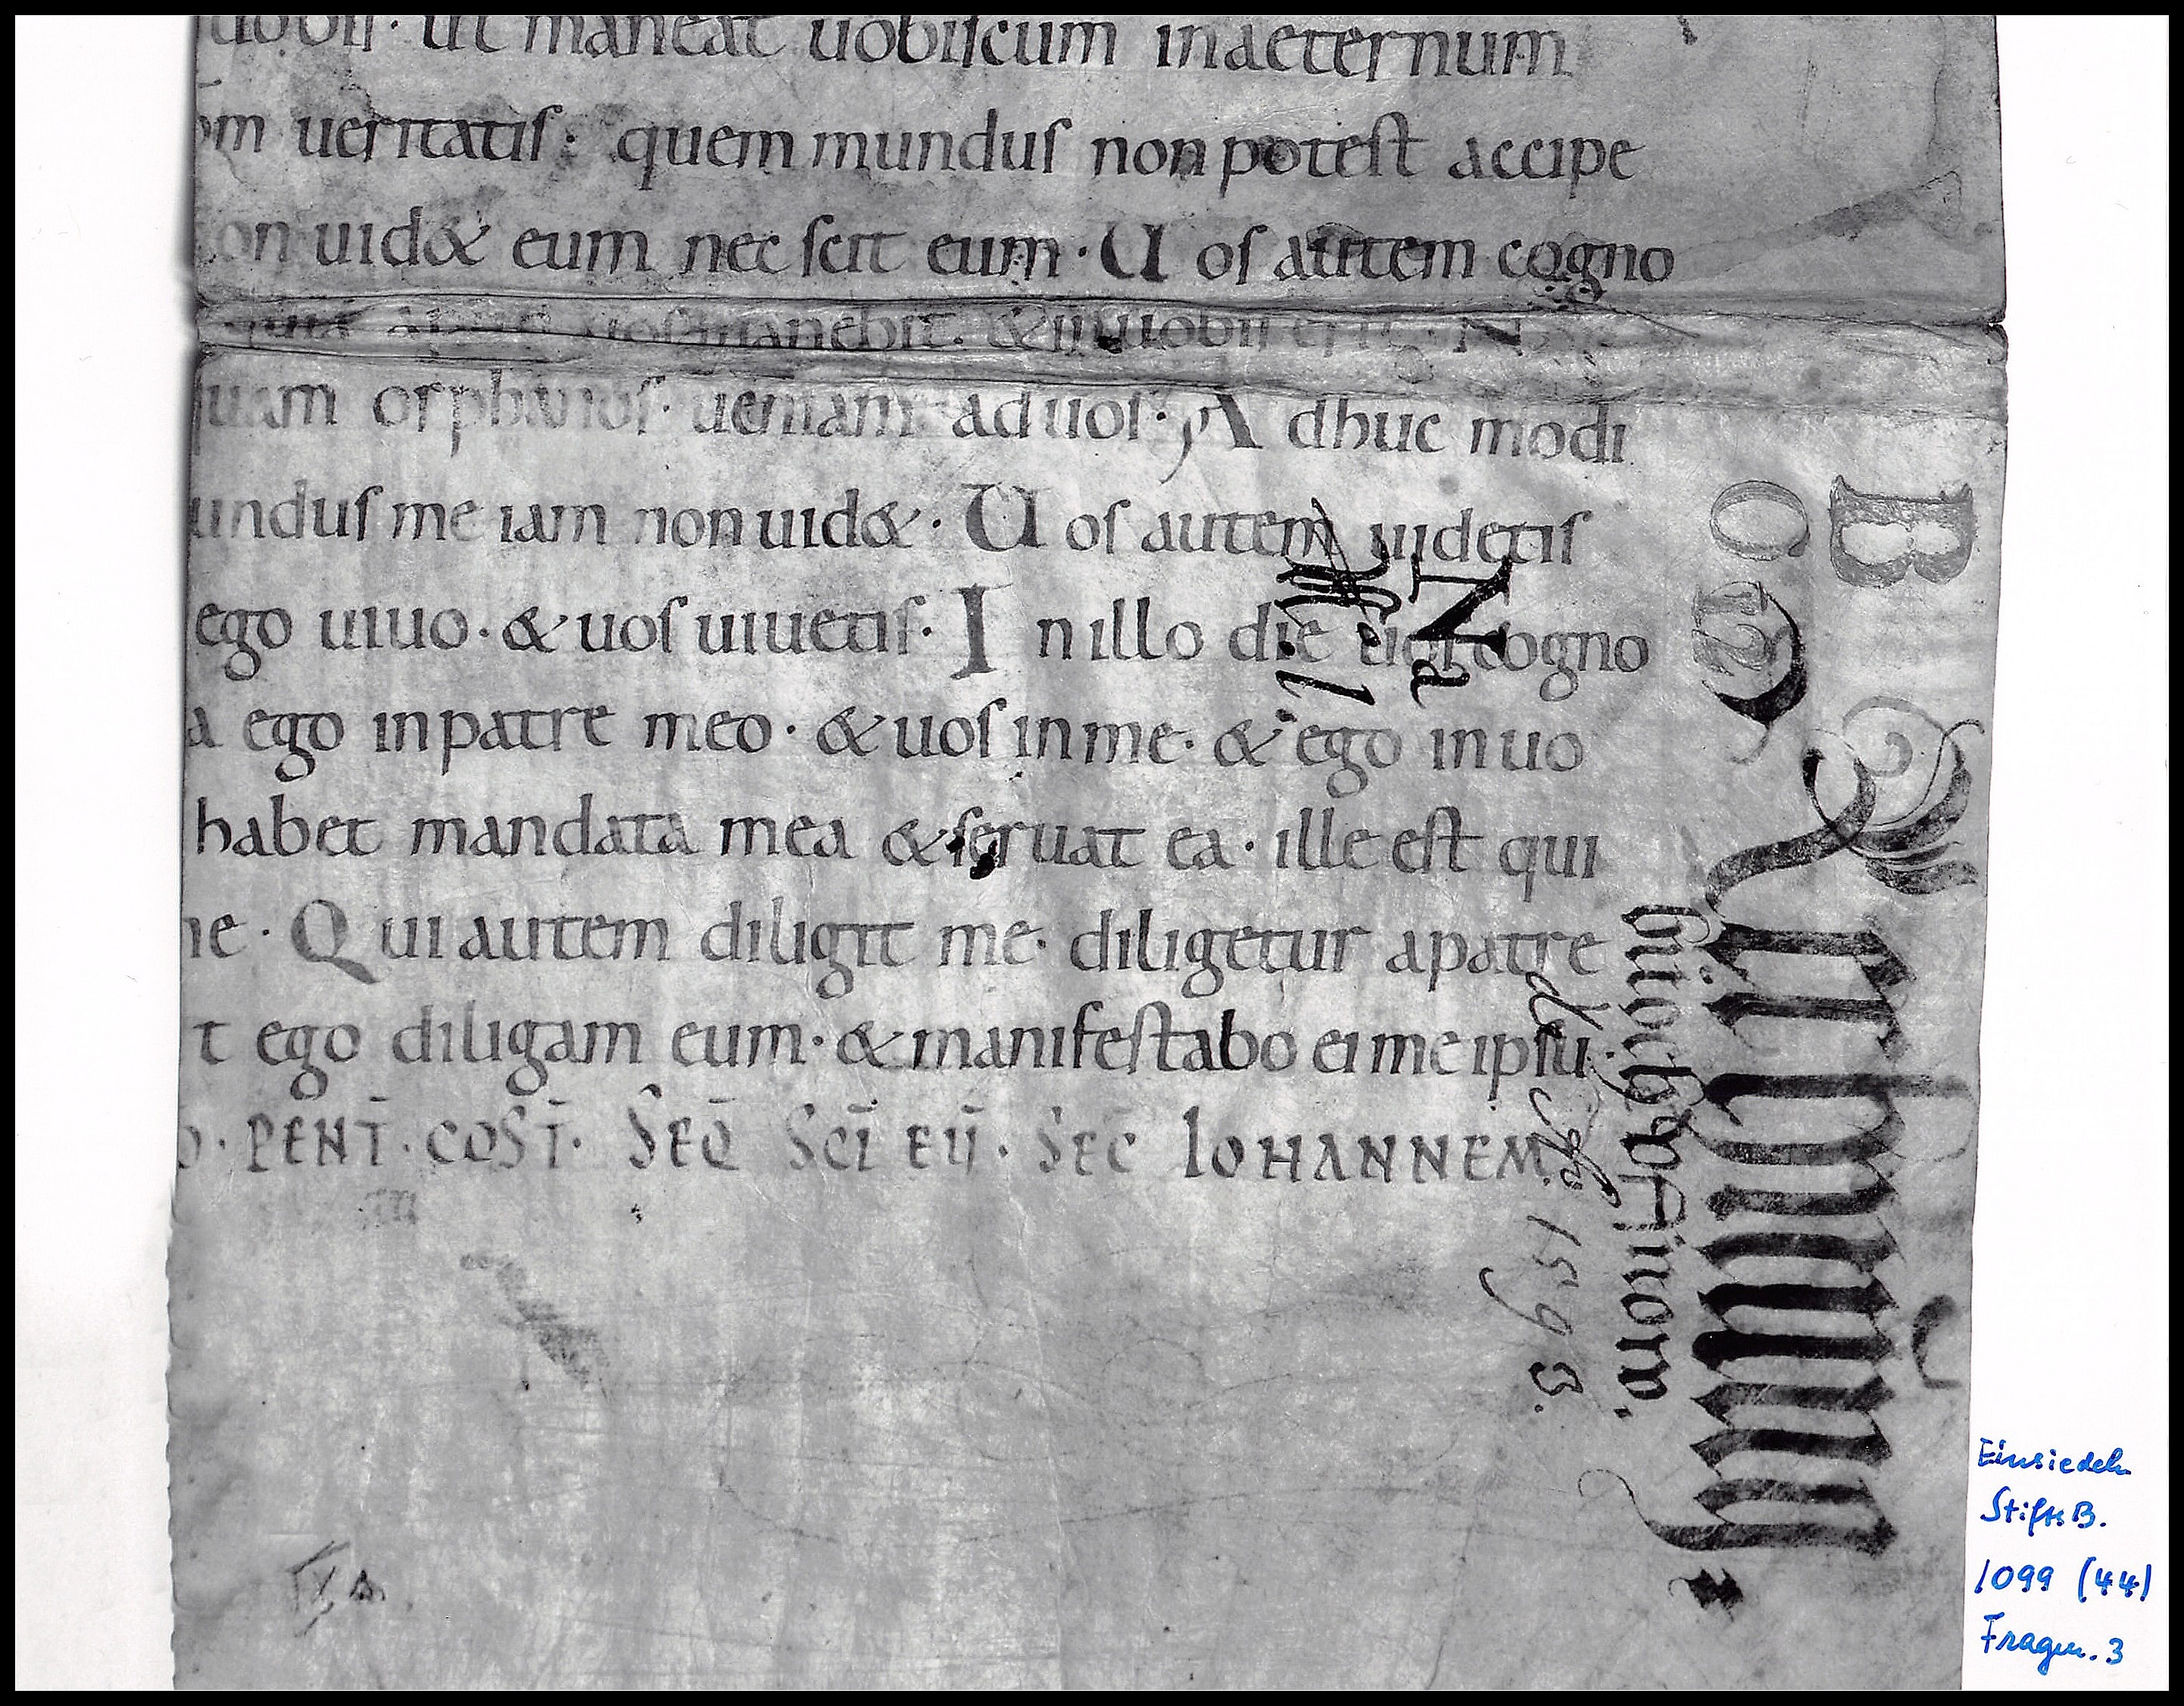 uobis · ut maneat uobiscum inaeternum
om ueritatis · quem mundus non potest accipe
on uid& eum nec scit eum · Uos autem cogno
quia apud uos manebit · & in uobis erit · N
quam orphanos · ueniam ad uos · Adhuc modi
undus me iam non uid& · Uos autem uidetis
ego uiuo · & uos uiuetis · In illo die uos cogno
a ego in patre meo · & uos in me · & ego in uo
habet mandata mea & seruat ea · ille est qui
ne · Qui autem diligit me · diligetur a patre
t ego diligam eum · & manifestabo ei me ipsu
o · PENT̄ · COST̄ · SEQ̄ SCĪ EŪ · SEC IOHANNEM
B
O
12
Na
1598.
Einsiedeln
StiftsB.
1099 (44)
Fragm. 3